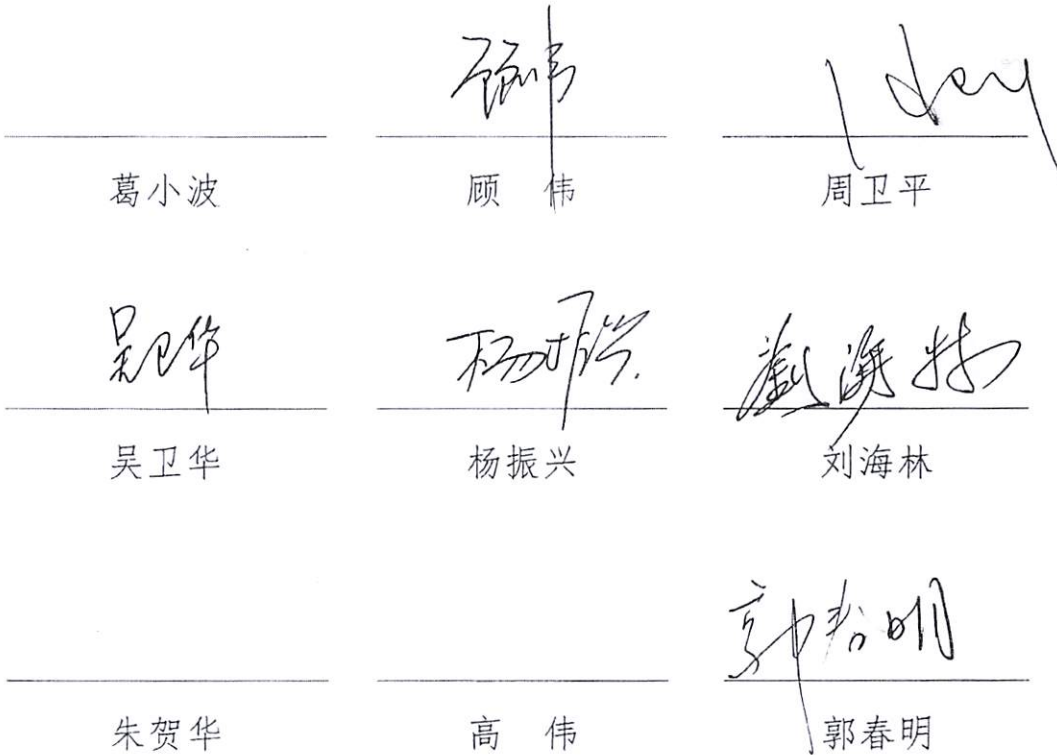 顾伟
葛小波 顾 伟 周卫平
吴卫华 杨振兴 刘海林
吴卫华 杨振兴 刘海林
郭春明
朱贺华 高 伟 郭春明